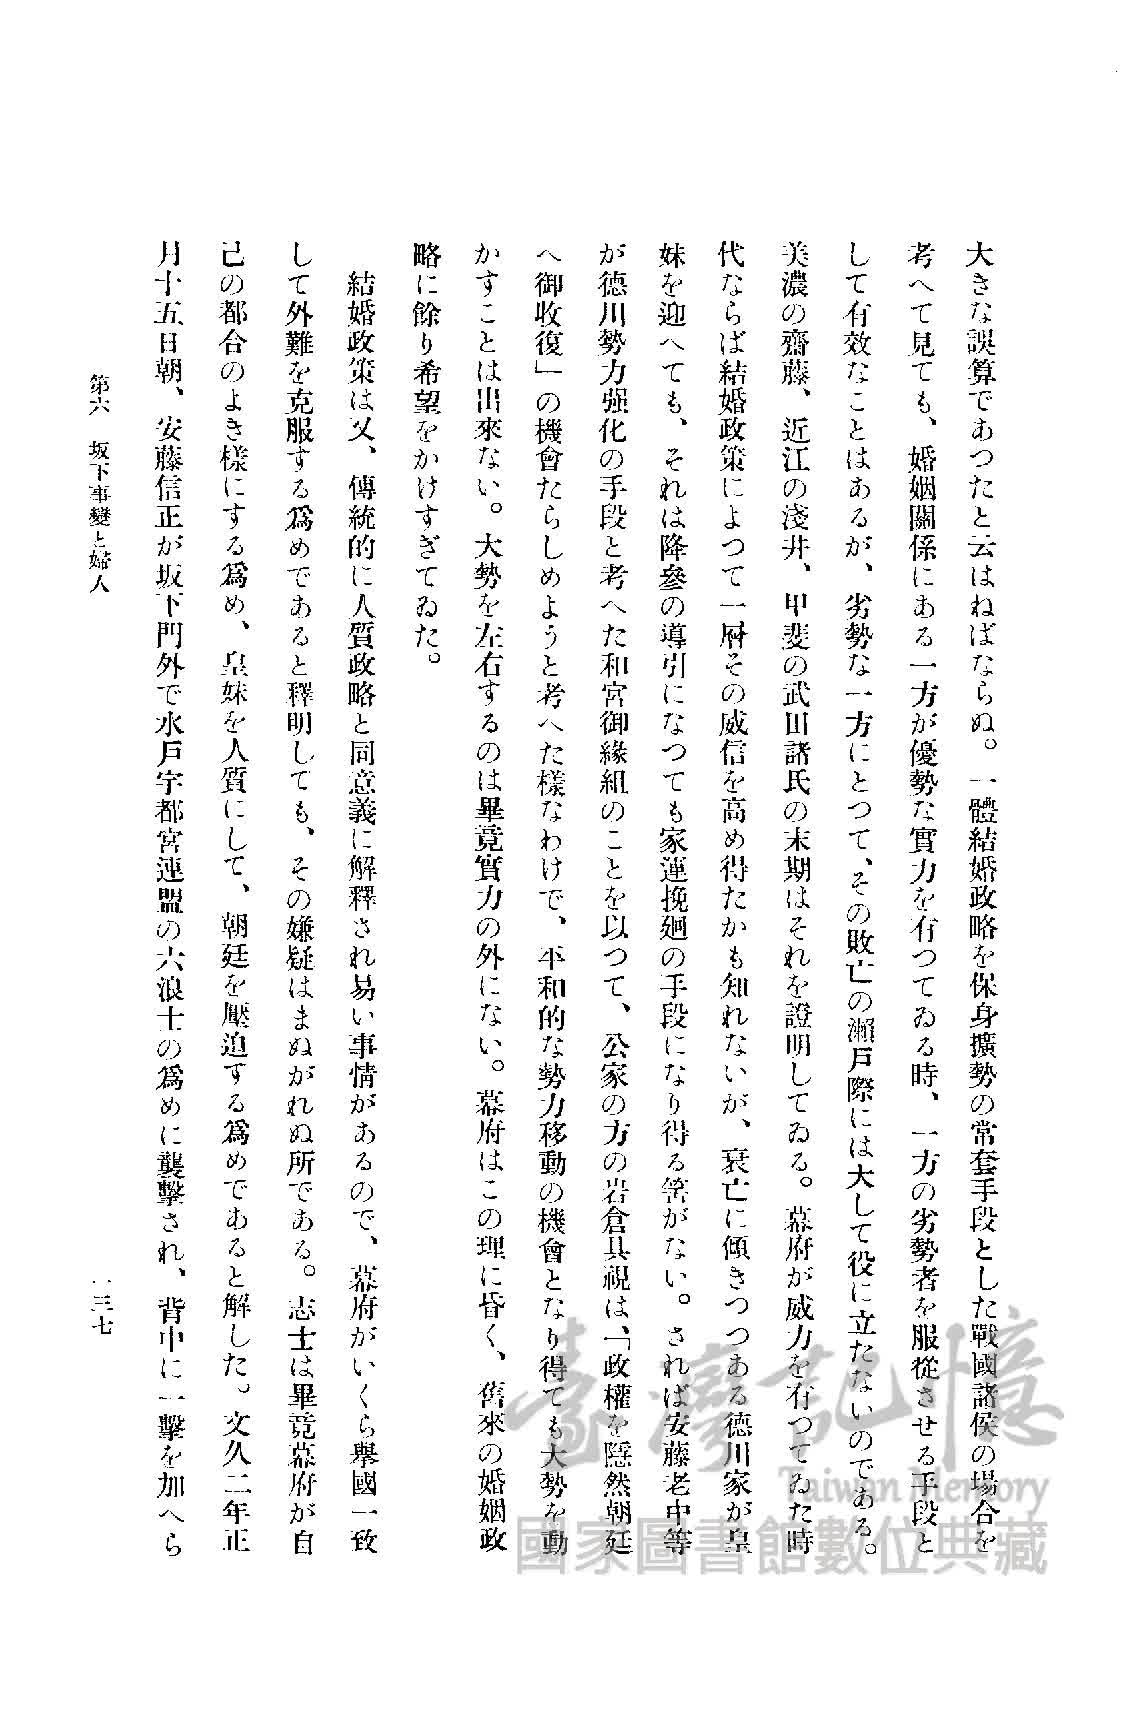 大きな誤算であつたと云はねばならぬ。一體結婚政略を保身擴勢の常套手段とした戰國諸侯の場合を
考へて見ても、婚姻關係にある一方が優勢な實力を有つてゐる時、一方の劣勢者を服從させる手段と
して有效なことはあるが、劣勢な一方にとつて、その敗亡の瀨戶際には大して役に立たないのである。
美濃の齋藤、近江の淺井、甲斐の武田諸氏の末期はそれを證明してゐる。幕府が威力を有つてゐた時
代ならば結婚政策によつて一層その威信を高め得たかも知れないが、衰亡に傾きつつある德川家が皇
妹を迎へても、それは降參の導引になつても家運挽廻の手段になり得る筈がない。されば安藤老中等
が德川勢力强化の手段と考へた和宮御緣組のことを以つて、公家の方の岩倉具視は、「政權を隱然朝廷
へ御收復」の機會たらしめようと考へた樣なわけで、平和的な勢力移動の機會となり得ても大勢を動
かすことは出來ない。大勢を左右するのは畢竟實力の外にない。幕府はこの理に昏く、舊來の婚姻政
略に餘り希望をかけすぎてゐた。
結婚政策は又、傳統的に人質政略と同意義に解釋され易い事情があるので、幕府がいくら擧國一致
して外難を克服する爲めであると釋明しても、その嫌疑はまぬがれぬ所である。志士は畢竟幕府が自
己の都合のよき樣にする爲め、皇妹を人質にして、朝廷を壓迫する爲めであると解した。文久二年正
月十五日朝、安藤信正が坂下門外で水戶宇都宮連盟の六浪士の爲めに襲擊され、背中に一擊を加へら
第六 坂下事變と婦人
一三七
臺灣記憶
Taiwan Memory
國家圖書館數位典藏